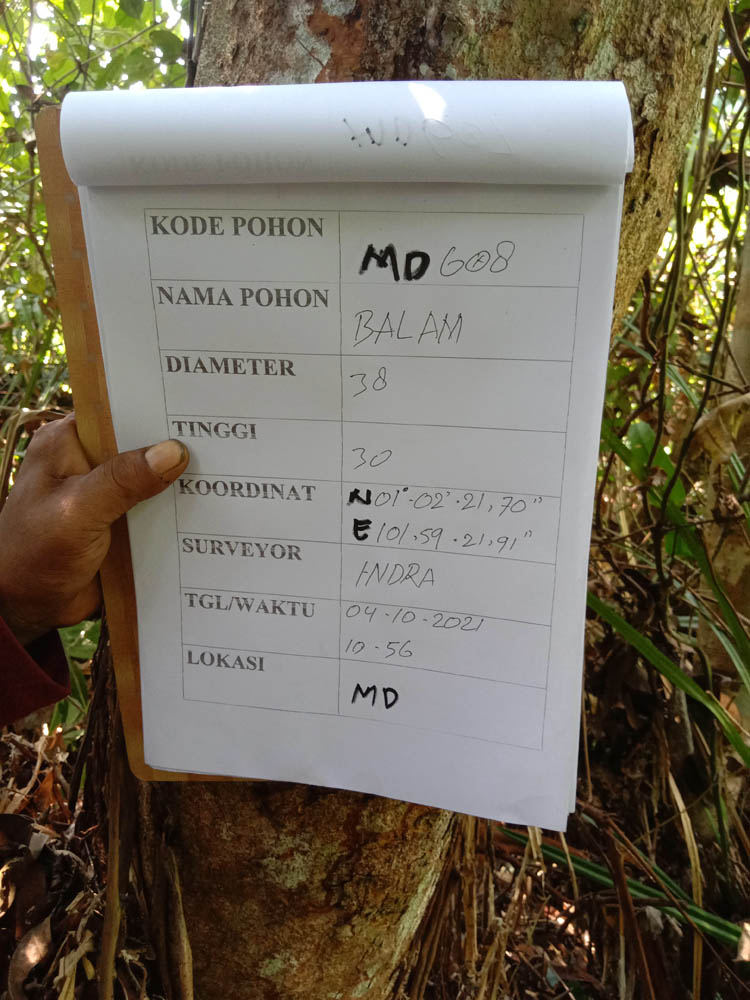 KODE POHON MD 608
NAMA POHON BALAM
DIAMETER 38
TINGGI 30
KOORDINAT N 01°-02'.21,70"
E 101.59.21,91"
SURVEYOR INDRA
TGL/WAKTU 04-10-2021
10-56
LOKASI MD